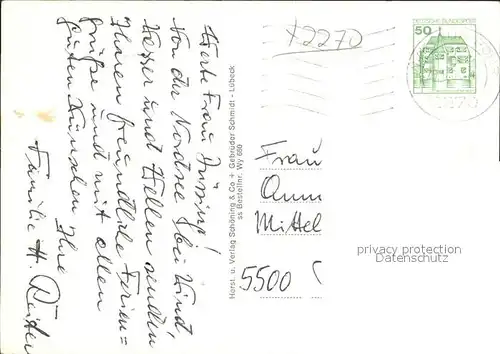 +2270
50
DEUTSCHE BUNDESPOST
Werte Frau
Von der Nordsee bei Wind,
Wasser und Wellen senden
Ihnen freundliche Ferien=
grüße und mit allen
guten Wünschen Ihre
Familie H.
Horst. u. Verlag Schöning & Co + Gebrüder Schmidt - Lübeck
ss Bestellnr. Wy 680
Frau
Anna
Mittel
5500
privacy protection
Datenschutz